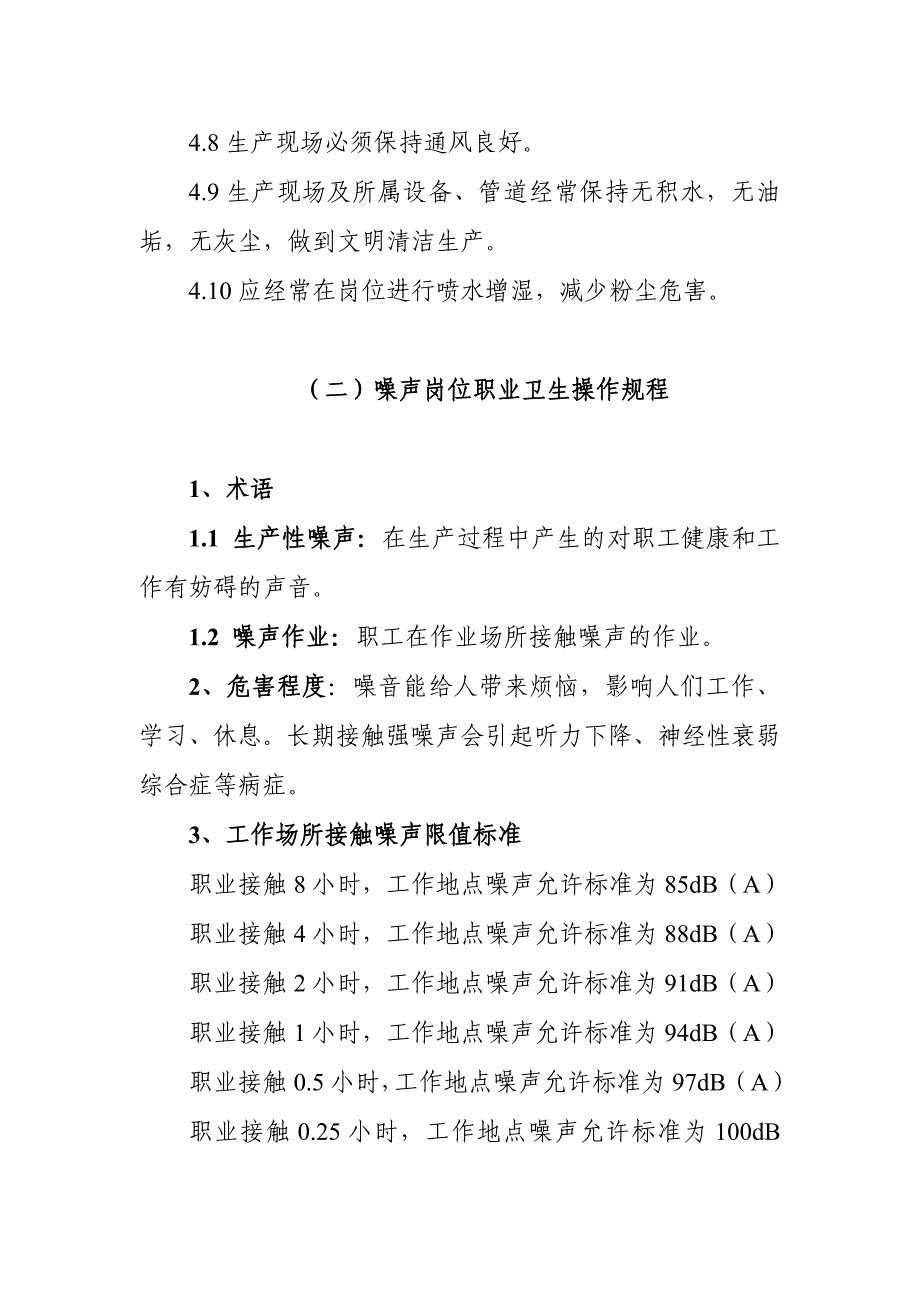 4.8 生产现场必须保持通风良好。
4.9 生产现场及所属设备、管道经常保持无积水，无油
垢，无灰尘，做到文明清洁生产。
4.10 应经常在岗位进行喷水增湿，减少粉尘危害。
（二）噪声岗位职业卫生操作规程
1、术语
1.1 生产性噪声：在生产过程中产生的对职工健康和工
作有妨碍的声音。
1.2 噪声作业：职工在作业场所接触噪声的作业。
2、危害程度：噪音能给人带来烦恼，影响人们工作、
学习、休息。长期接触强噪声会引起听力下降、神经性衰弱
综合症等病症。
3、工作场所接触噪声限值标准
职业接触 8 小时，工作地点噪声允许标准为 85dB（A）
职业接触 4 小时，工作地点噪声允许标准为 88dB（A）
职业接触 2 小时，工作地点噪声允许标准为 91dB（A）
职业接触 1 小时，工作地点噪声允许标准为 94dB（A）
职业接触 0.5 小时，工作地点噪声允许标准为 97dB（A）
职业接触 0.25 小时，工作地点噪声允许标准为 100dB